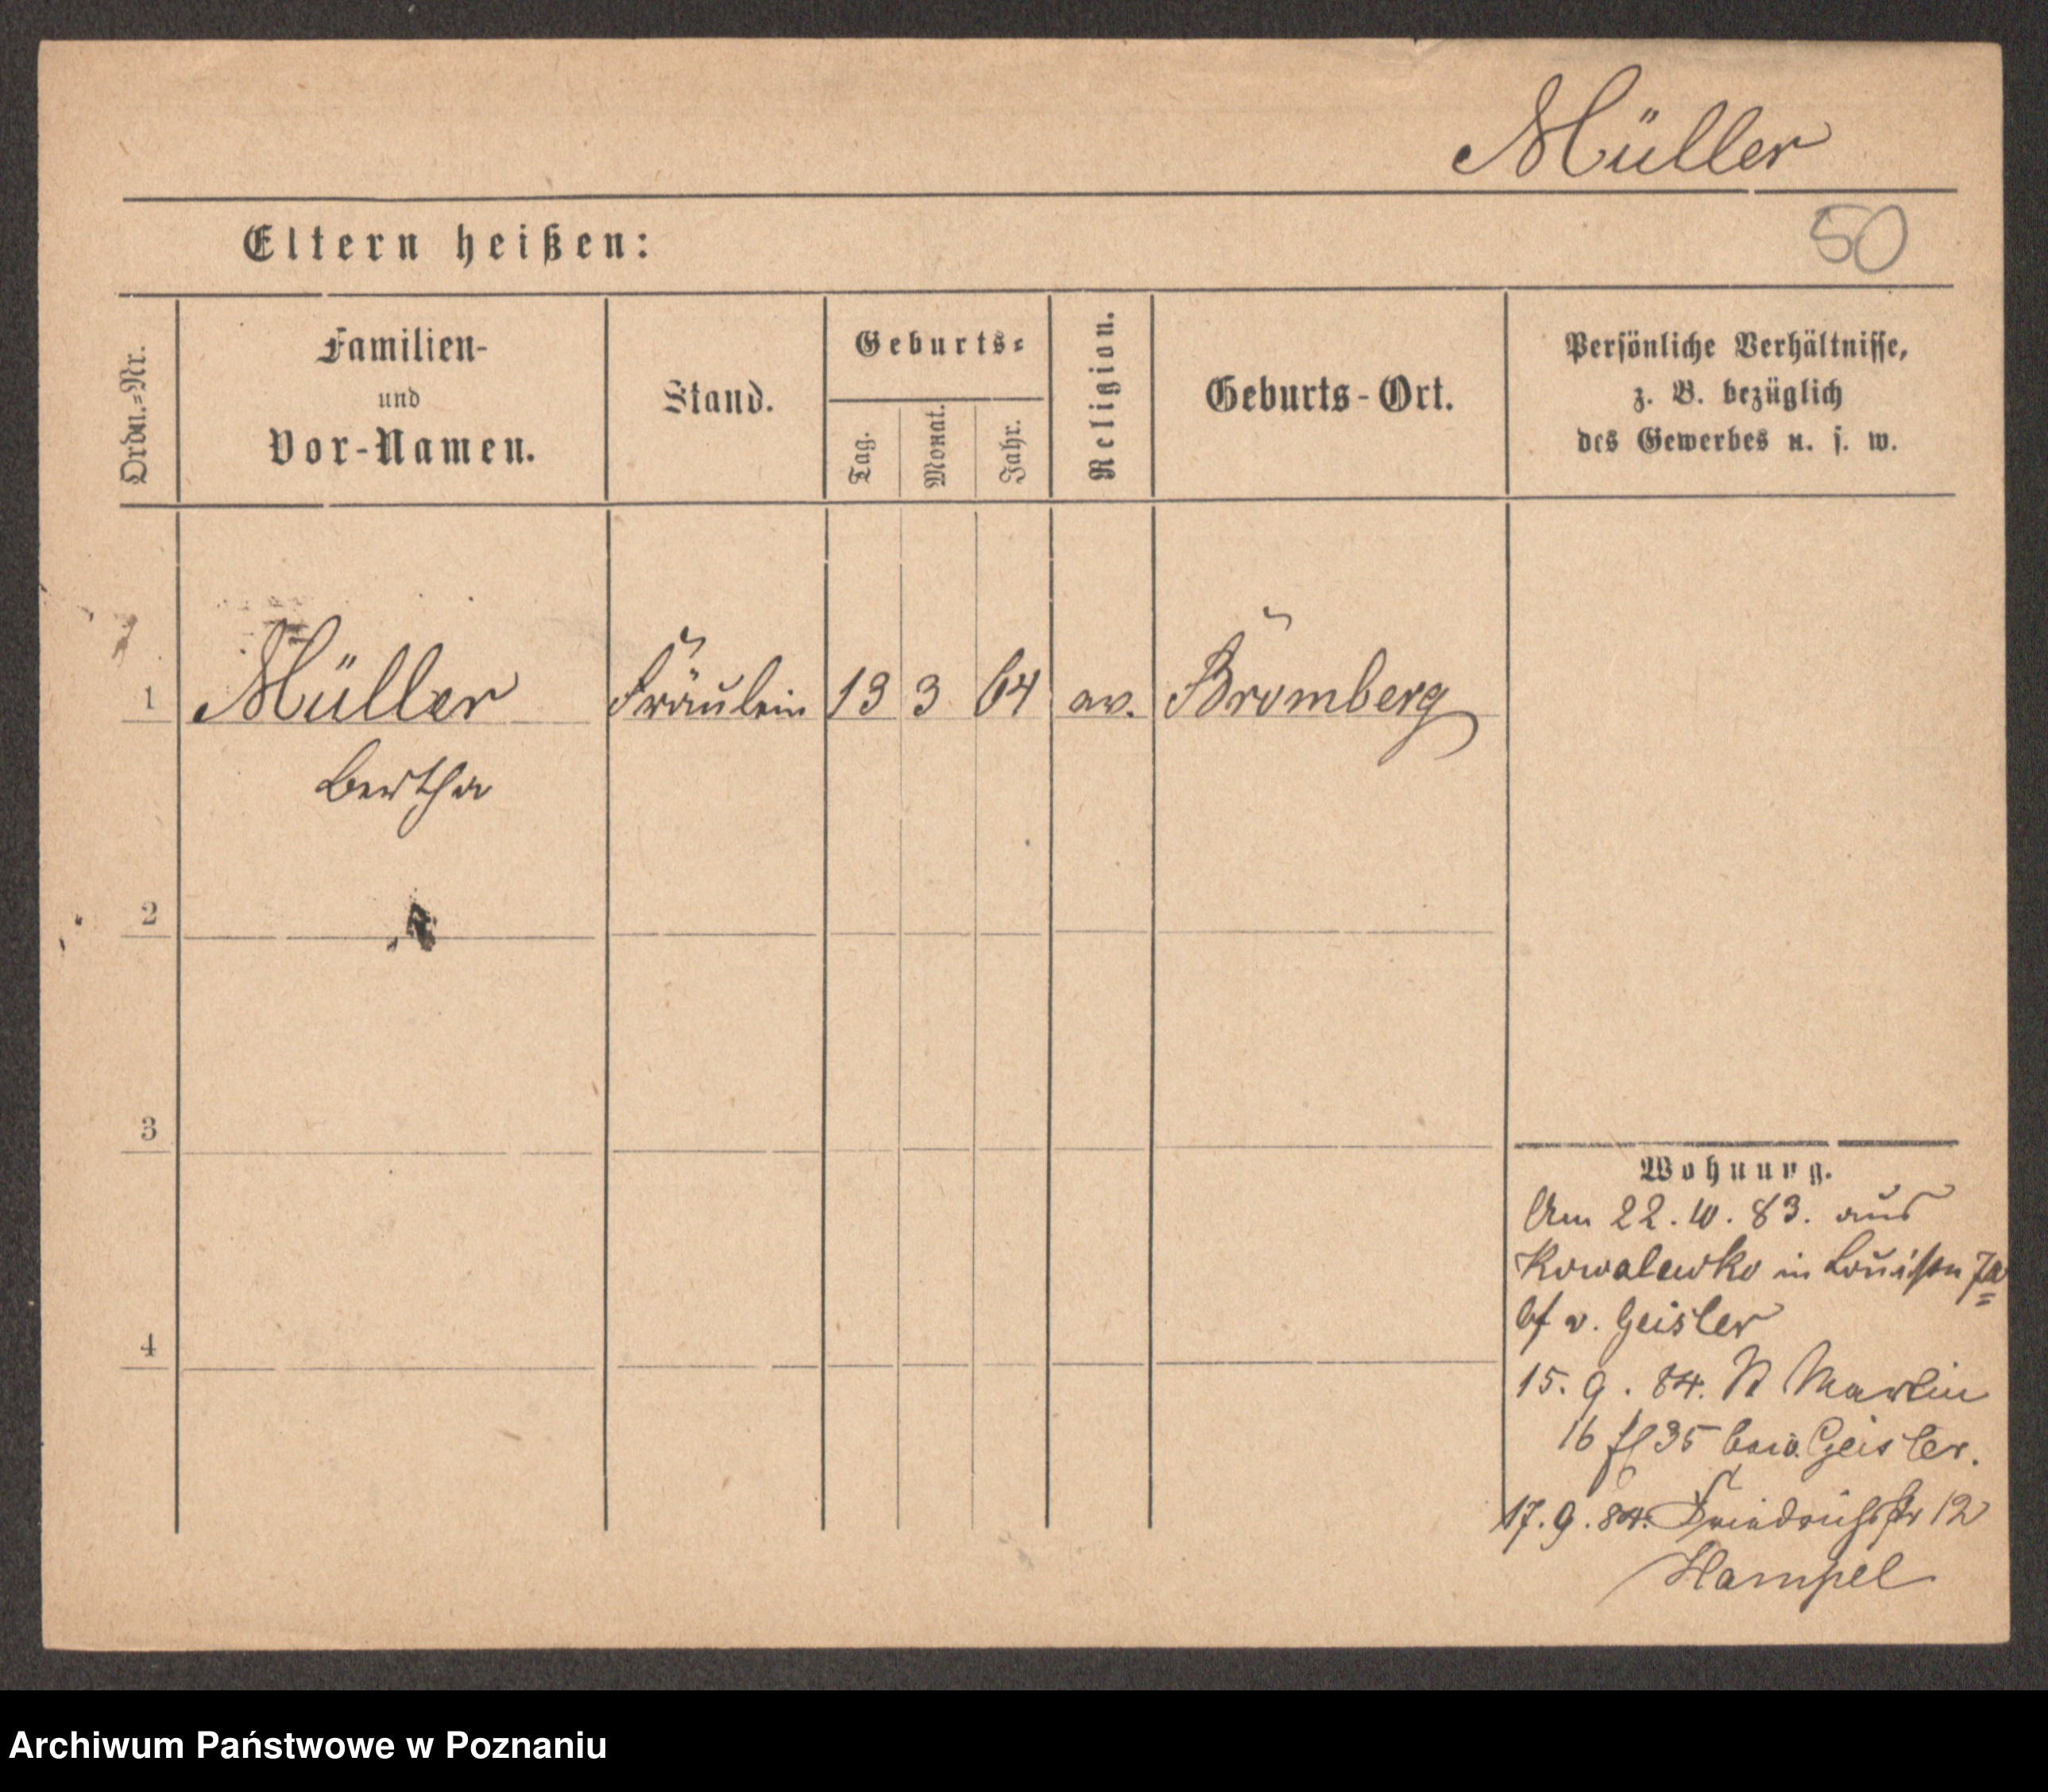 Müller
50
Eltern heißen:
Ordn.=Nr.
Familien-
und
Vor-Namen.
Stand.
Geburts=
Tag.
Monat.
Jahr.
Religion.
Geburts-Ort.
Persönliche Verhältnisse,
z. B. bezüglich
des Gewerbes u. s. w.
1 Müller Fräulein 13 3 64 ev. Bromberg
Bertha
2
3
4
Wohnung.
Am 22.10.83. aus
Kowalewko in Louisen 7a
v. Geisler
15.9.84. St Martin
16 bei v. Geisler.
17.9.84. Friedrichsstr 12
Hampel
Archiwum Państwowe w Poznaniu